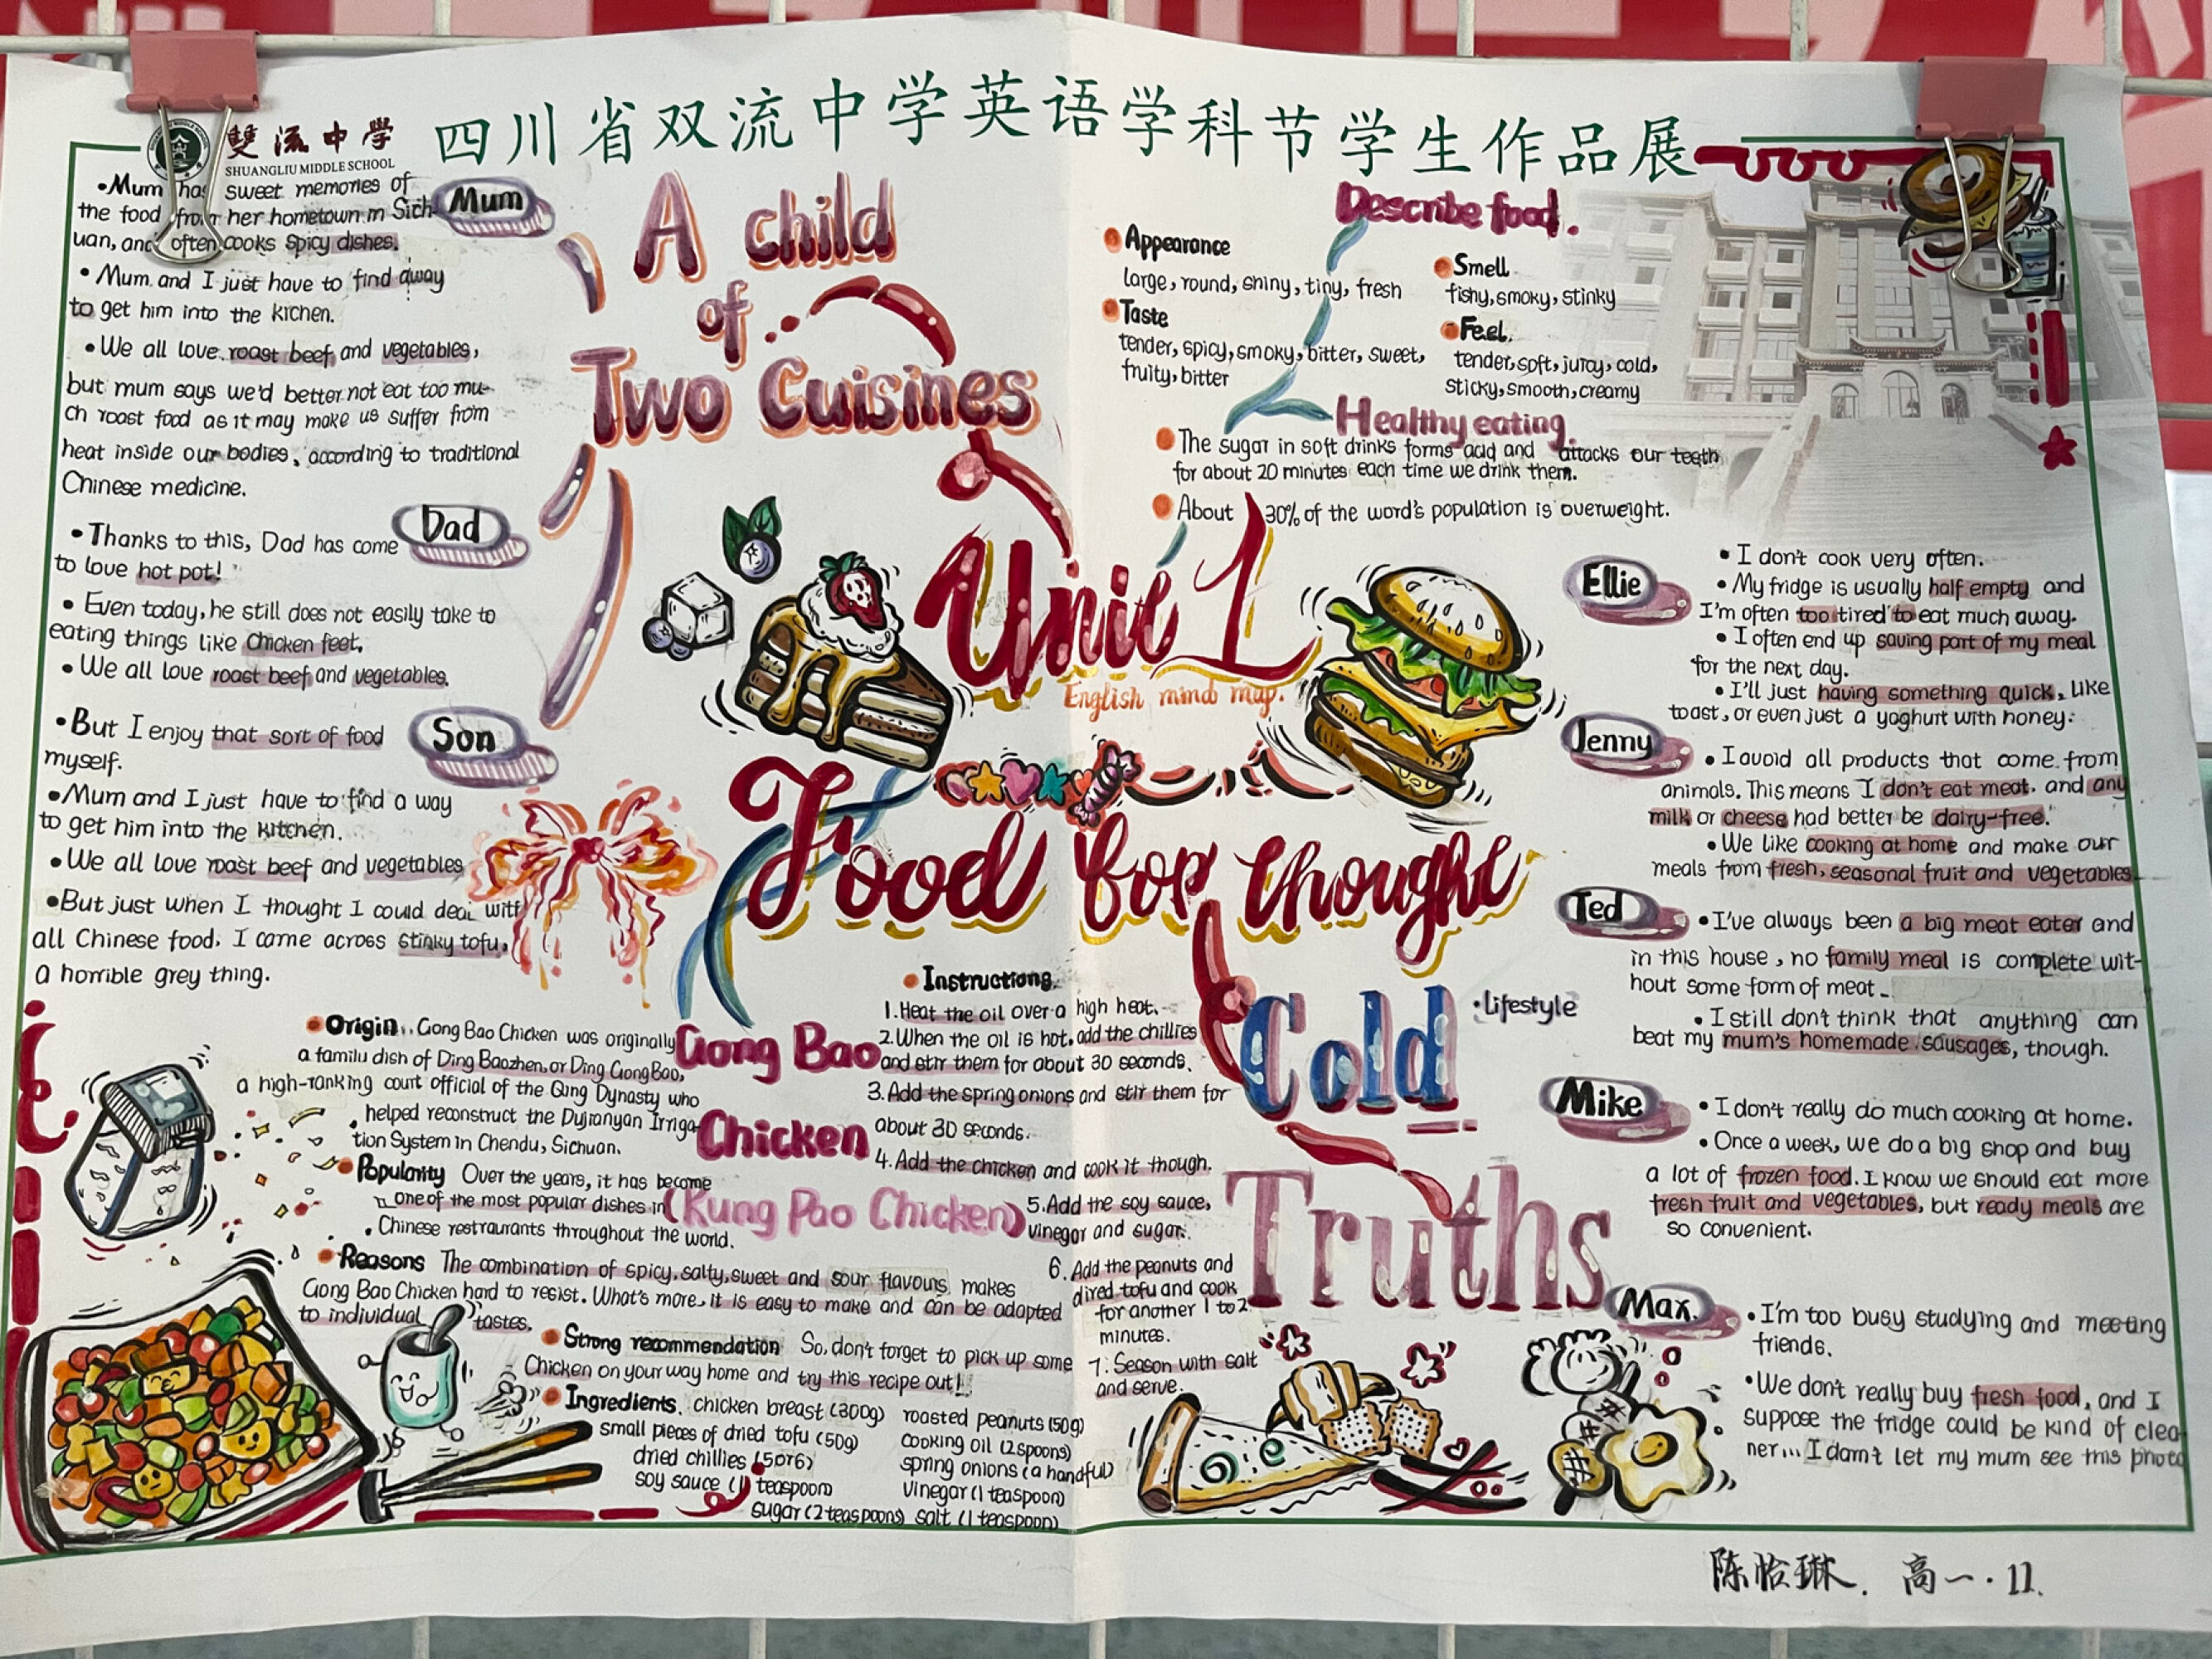 雙流中学
SHUANGLIU MIDDLE SCHOOL
四川省双流中学英语学科节学生作品展
A child
of
Two Cuisines
Mum
•Mum has sweet memories of
the food from her hometown in Sich-
uan, and often cooks spicy dishes.
•Mum and I just have to find away
to get him into the kichen.
•We all love roast beef and vegetables,
but mum says we'd better not eat too mu-
ch roast food as it may make us suffer from
heat inside our bodies, according to traditional
Chinese medicine.
Dad
•Thanks to this, Dad has come
to love hot pot!
•Even today, he still does not easily take to
eating things like chicken feet.
•We all love roast beef and vegetables.
Son
•But I enjoy that sort of food
myself.
•Mum and I just have to find a way
to get him into the kitchen.
•We all love roast beef and vegetables
•But just when I thought I could deal with
all Chinese food, I came across stinky tofu,
a horrible grey thing.
Describe food.
Appearance
large, round, shiny, tiny, fresh
Taste
tender, spicy, smoky, bitter, sweet,
fruity, bitter
Smell
fishy, smoky, stinky
Feel
tender, soft, juicy, cold,
sticky, smooth, creamy
Healthy eating.
The sugar in soft drinks forms acid and attacks our teeth
for about 20 minutes each time we drink them.
About 30% of the word's population is overweight.
Unit 1
English mind map.
Food for thought
Gong Bao
Chicken
(Kung Pao Chicken)
Origin.. Gong Bao Chicken was originally
a family dish of Ding Baozhen, or Ding Gong Bao,
a high-ranking court official of the Qing Dynasty who
helped reconstruct the Dujianyan Irriga-
tion System in Chendu, Sichuan.
Popularity Over the years, it has become
one of the most popular dishes in
Chinese restraurants throughout the world.
Reasons The combination of spicy, salty, sweet and sour flavours makes
Gong Bao Chicken hard to resist. What's more, it is easy to make and can be adapted
to individual tastes.
Strong recommendation So, don't forget to pick up some
Chicken on your way home and try this recipe out!
Ingredients. chicken breast (300g)
small pieces of dried tofu (50g)
dried chillies (5or6)
soy sauce (1 teaspoon)
sugar (2 teaspoons)
roasted peanuts (50g)
cooking oil (2spoons)
spring onions (a handful)
vinegar (1 teaspoon)
salt (1 teaspoon)
Instructions.
1.Heat the oil over a high heat.
2.When the oil is hot, add the chillies
and stir them for about 30 seconds.
3.Add the spring onions and stir them for
about 30 seconds.
4.Add the chicken and cook it though.
5.Add the soy sauce,
vinegar and sugar.
6.Add the peanuts and
dired tofu and cook
for another 1 to 2
minutes.
7.Season with salt
and serve.
Cold
Truths
•Lifestyle
Ellie
•I don't cook very often.
•My fridge is usually half empty and
I'm often too tired to eat much away.
•I often end up saving part of my meal
for the next day.
•I'll just having something quick, like
toast, or even just a yoghurt with honey.
Jenny
•I avoid all products that come from
animals. This means I don't eat meat, and any
milk or cheese had better be dairy-free.
•We like cooking at home and make our
meals from fresh, seasonal fruit and vegetables
Ted
•I've always been a big meat eater and
in this house, no family meal is complete wit-
hout some form of meat.
•I still don't think that anything can
beat my mum's homemade sausages, though.
Mike
•I don't really do much cooking at home.
•Once a week, we do a big shop and buy
a lot of frozen food. I know we should eat more
fresh fruit and vegetables, but ready meals are
so convenient.
Max.
•I'm too busy studying and meeting
friends.
•We don't really buy fresh food, and I
suppose the fridge could be kind of clea-
ner... I dam't let my mum see this photo
陈怡琳. 高一·11.